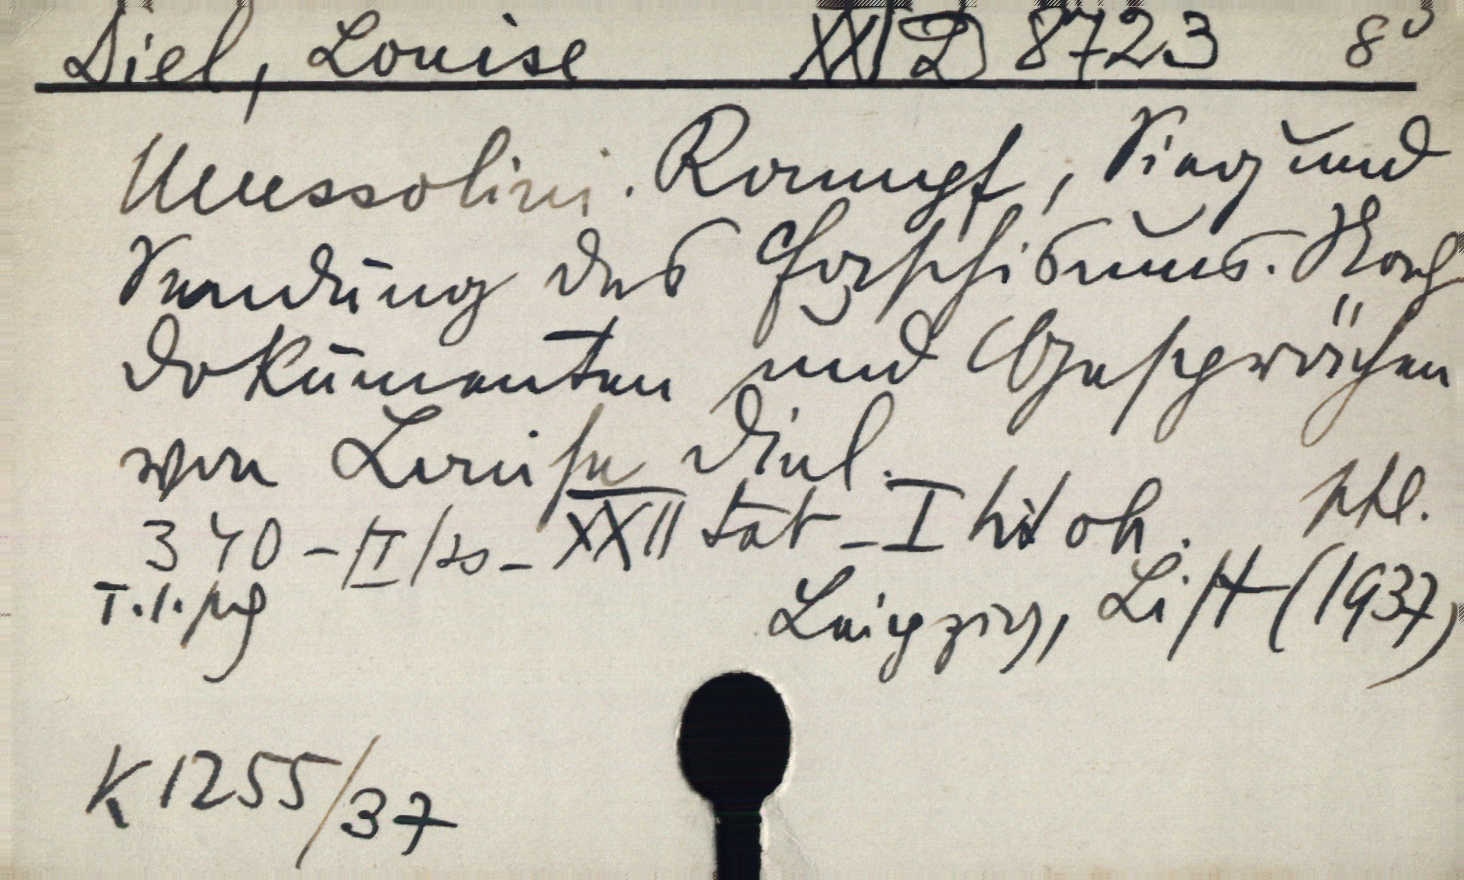 Diel, Louise XXI D 8723 8°
Mussolini. Kampf, Sieg und
Sendung des Faschismus. Nach
Dokumenten und Gesprächen
von Louise Diel.
340 - II / 20 - XXII tab - I hd oh.
T. 1.
Leipzig, List (1937)
K 1255/37